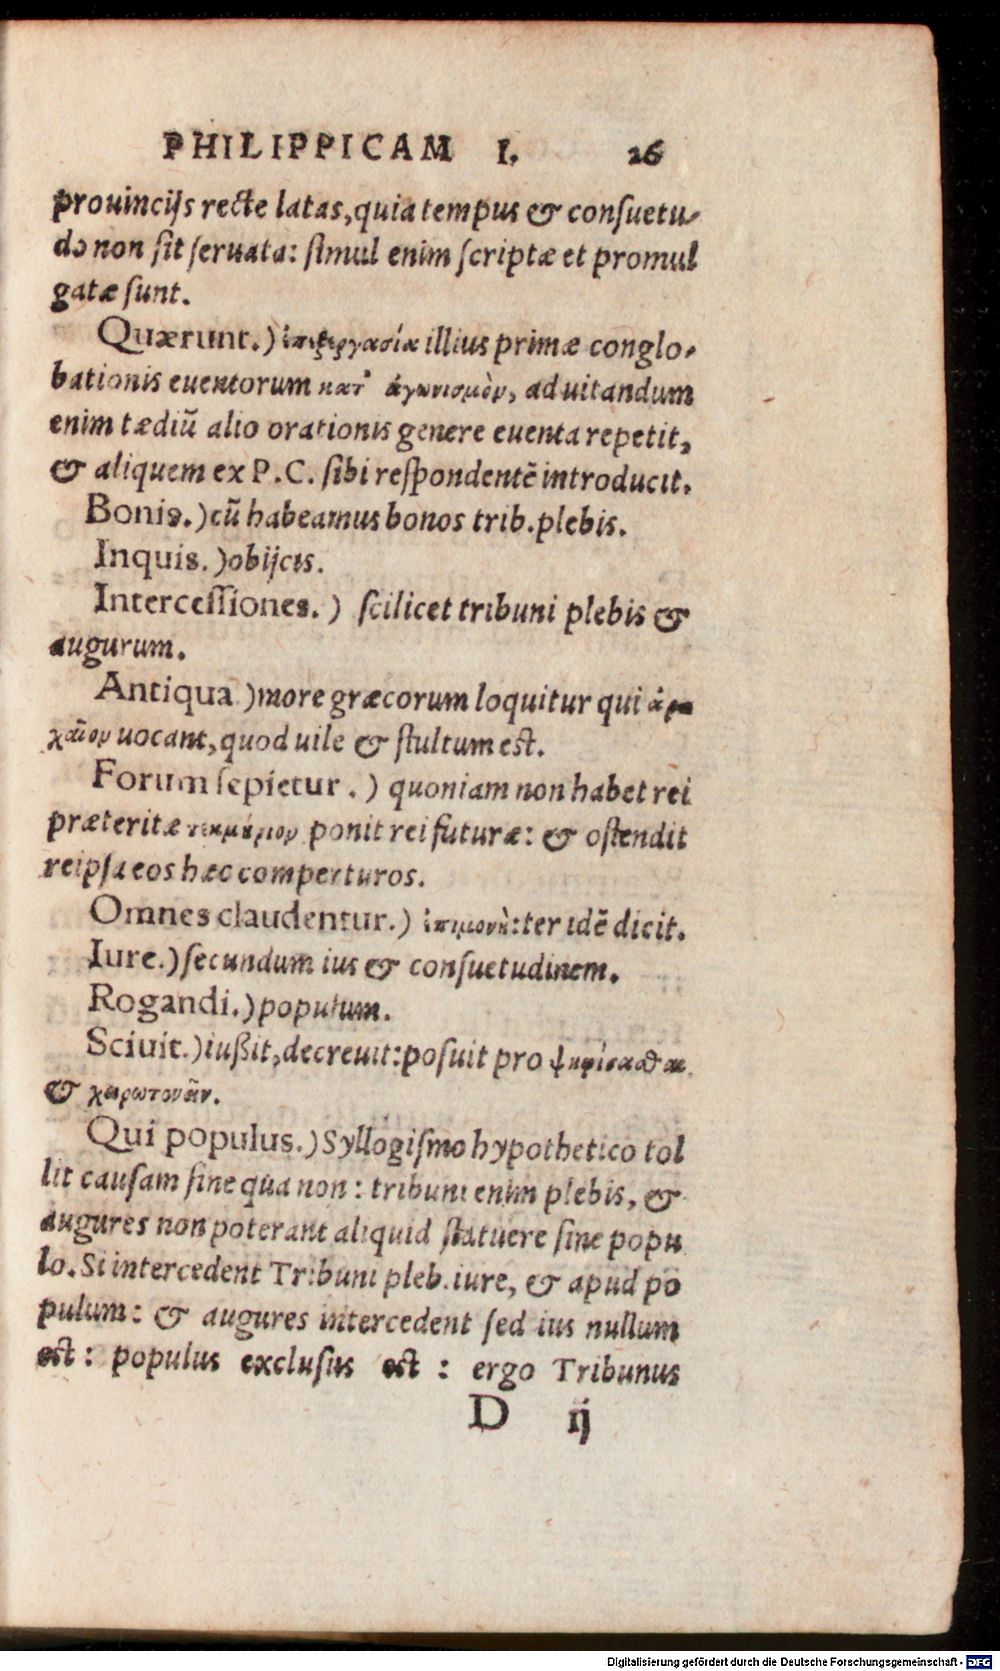 PHILIPPICAM I. 26
prouincijs recte latas, quia tempus & consuetu-
do non sit seruata: simul enim scriptæ et promul
gatæ sunt.
Quærunt.) ἐπεξεργασία illius primæ conglo-
bationis euentorum κατ' ἀγωνισμὸν, ad uitandum
enim tædiũ alio orationis genere euenta repetit,
& aliquem ex P. C. sibi respondentẽ introducit.
Bonis.) cũ habeamus bonos trib. plebis.
Inquis.) obijcis.
Intercessiones.) scilicet tribuni plebis &
augurum.
Antiqua.) more græcorum loquitur qui ἀρ
χαῖον uocant, quod uile & stultum est.
Forum sepietur.) quoniam non habet rei
præteritæ τεκμήριον ponit rei futuræ: & ostendit
reipsa eos hæc comperturos.
Omnes claudentur.) ἐπιμονὴ: ter idẽ dicit.
Iure.) secundum ius & consuetudinem.
Rogandi.) populum.
Sciuit.) iußit, decreuit: posuit pro ψηφίσασθαι
& χειροτονεῖν.
Qui populus.) Syllogismo hypothetico tol
lit causam sine qua non: tribuni enim plebis, &
augures non poterant aliquid statuere sine popu
lo. Si intercedent Tribuni pleb. iure, & apud po
pulum: & augures intercedent sed ius nullum
est: populus exclusus est: ergo Tribunus
D ij
Digitalisierung gefördert durch die Deutsche Forschungsgemeinschaft - DFG